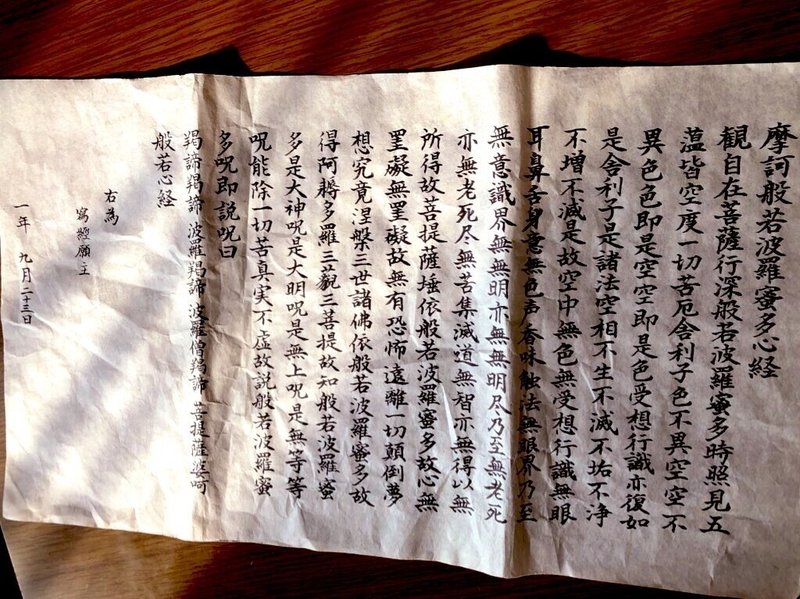 摩訶般若波羅蜜多心経
観自在菩薩行深般若波羅蜜多時照見五
薀皆空度一切苦厄舎利子色不異空空不
異色色即是空空即是色受想行識亦復如
是舎利子是諸法空相不生不滅不垢不浄
不増不減是故空中無色無受想行識無眼
耳鼻舌身意無色声香味触法無眼界乃至
無意識界無無明亦無無明尽乃至無老死
亦無老死尽無苦集滅道無智亦無得以無
所得故菩提薩埵依般若波羅蜜多故心無
罣礙無罣礙故無有恐怖遠離一切顛倒夢
想究竟涅槃三世諸佛依般若波羅蜜多故
得阿耨多羅三藐三菩提故知般若波羅蜜
多是大神呪是大明呪是無上呪是無等等
呪能除一切苦真実不虚故説般若波羅蜜
多呪即説呪曰
羯諦羯諦 波羅羯諦 波羅僧羯諦 菩提薩婆呵
般若心経
右為
寫經願主
一年 九月二十三日